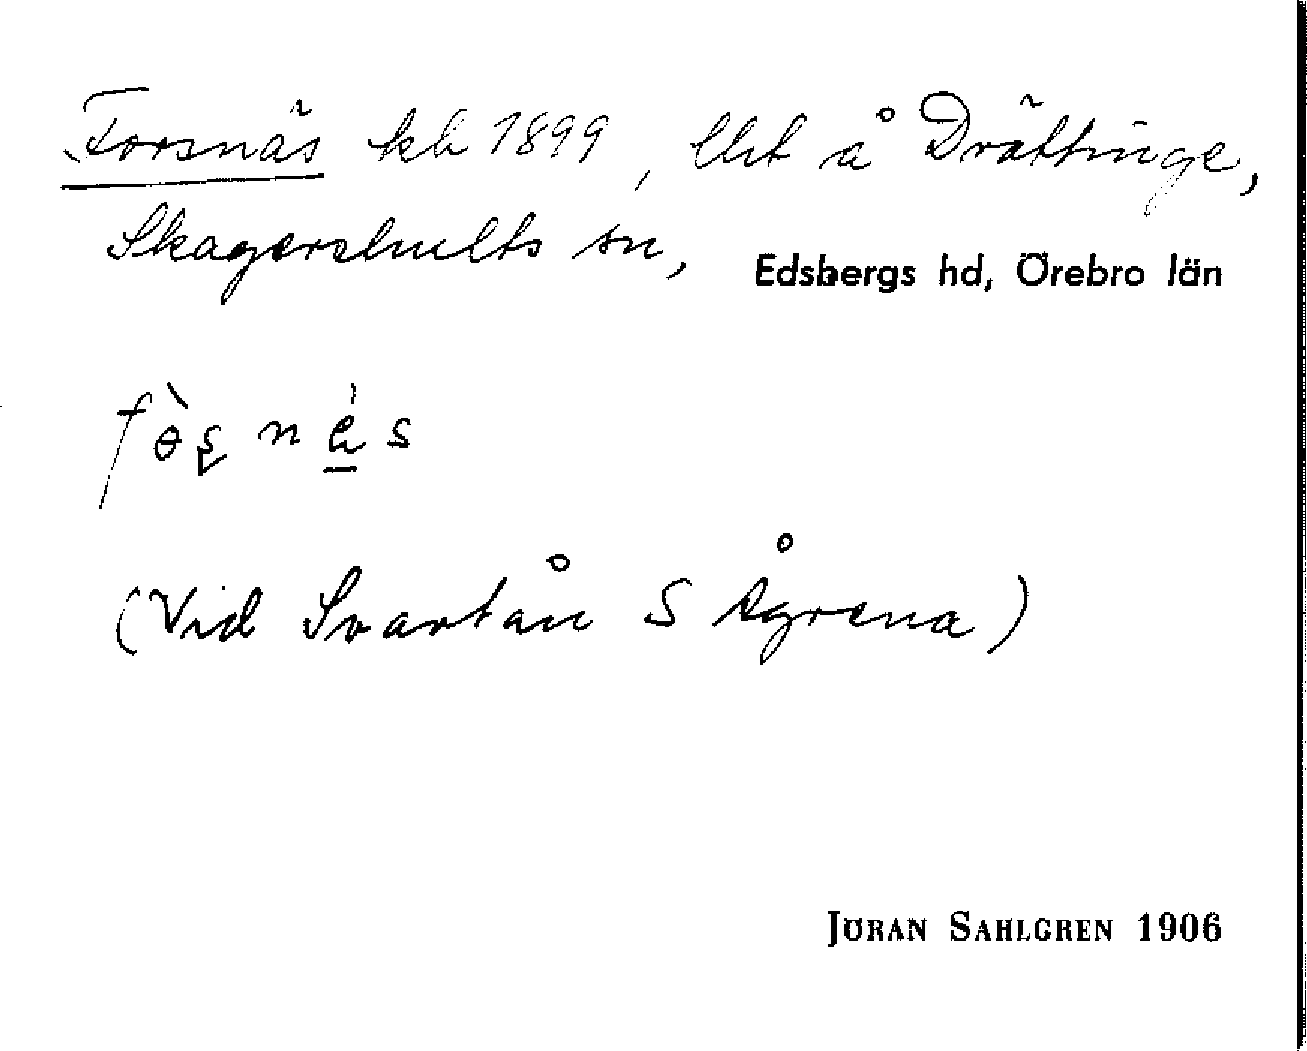 Forsnäs kb 1899, lht å Drättinge,
Skagershults sn, Edsbergs hd, Örebro län
(Vid Svartån S Ågrena)
JÖRAN SAHLGREN 1906